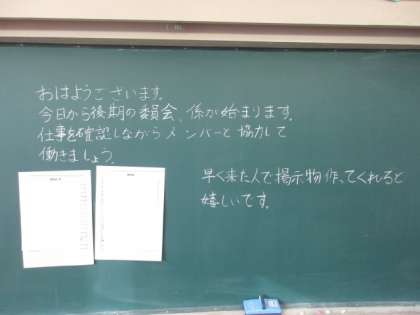 おはようございます。
今日から後期の委員会、係が始まります。
仕事を確認しながらメンバーと協力して
働きましょう。
早く来た人で掲示物作ってくれると
嬉しいです。